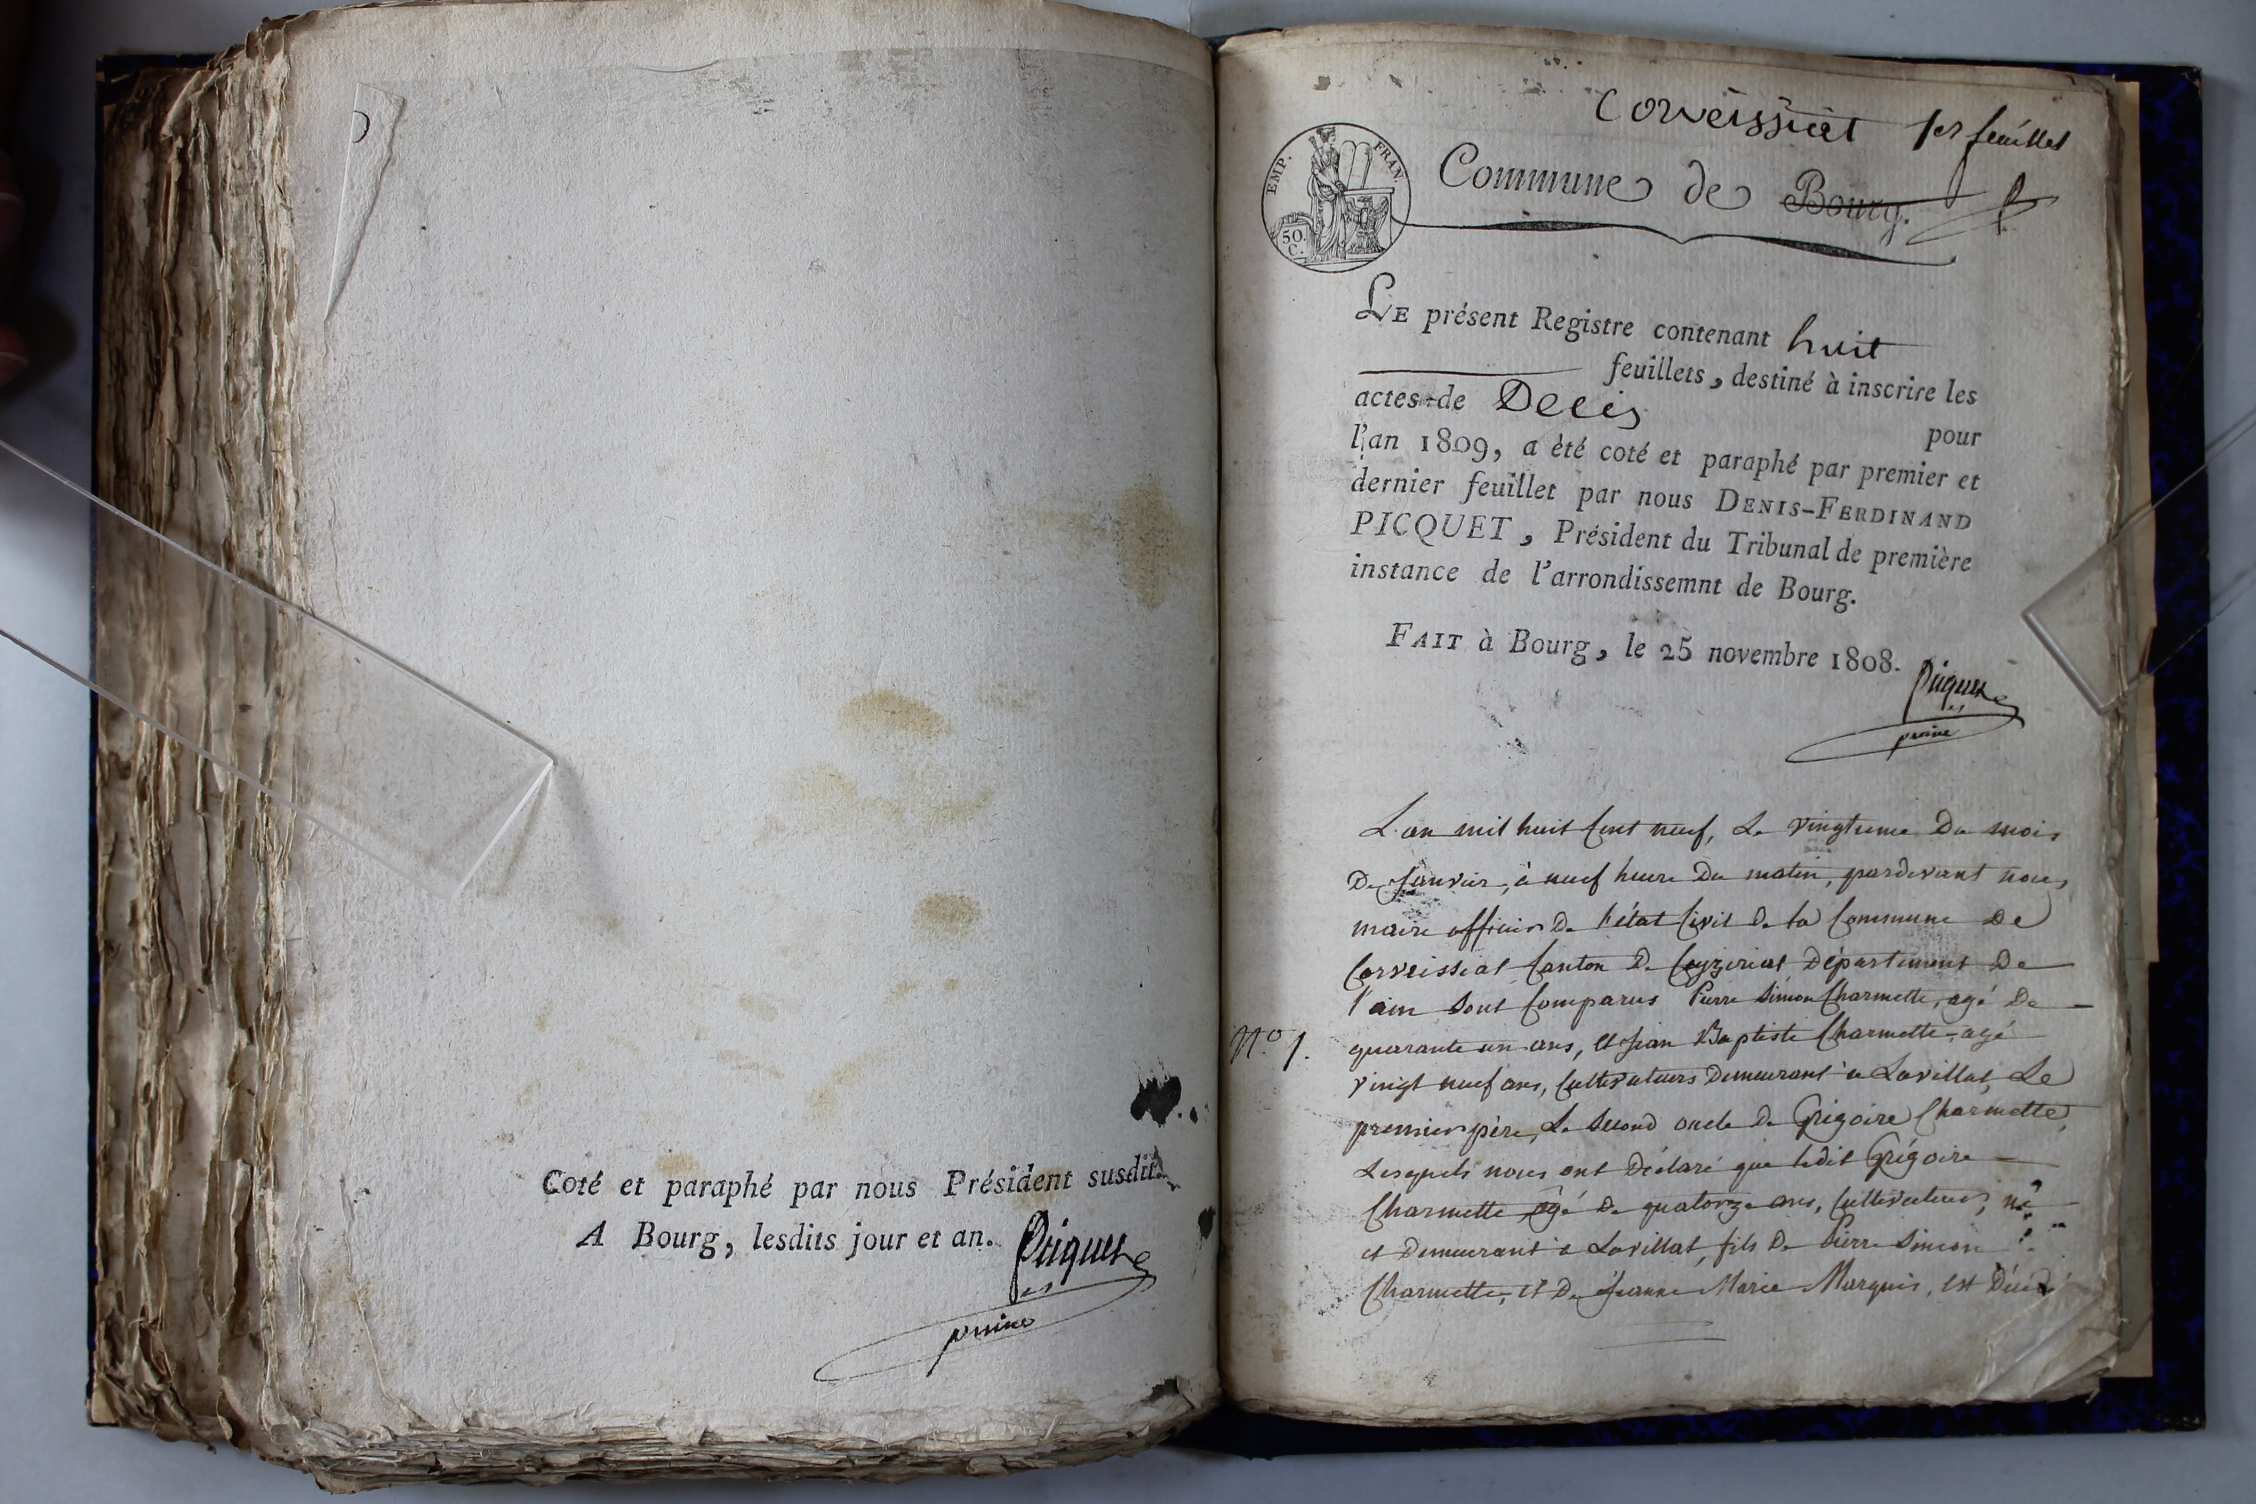 Coté et paraphé par nous Président susdit.
A Bourg, lesdits jour et an.
Picquet
Corveissiat 1er feuillet
EMP. FRAN.
50.
C.
Commune de Bourg.
LE présent Registre contenant huit
feuillets, destiné à inscrire les
actes de Décès pour
l'an 1809, a èté coté et paraphé par premier et
dernier feuillet par nous DENIS-FERDINAND
PICQUET, Président du Tribunal de première
instance de l'arrondissemnt de Bourg.
FAIT à Bourg, le 25 novembre 1808.
Picquet
L'an mil huit Cent neuf, Le vingtieme Du mois
De Janvier, à neuf heure Du matin, pardevant nous
maire officier De l'état Civil De la Commune De
Corveissiat Canton De Ceyzeriat Département De
l'ain Sont Comparus Pierre Simon Charmette, agé De
N.o 1.
quarante un ans, et Jean Baptiste Charmette agé
vingt neuf ans, Cultivateurs Demeurant à Lavillat, Le
premier père, Le Second oncle De Grégoire Charmette,
Lesquels nous ont Déclaré que ledit Grégoire
Charmette, âgé De quatorze ans, Cultivateur, né
et Demeurant à Lavillat, fils De Pierre Simon
Charmette, et De Jeanne Marie Marquis, est Décédé